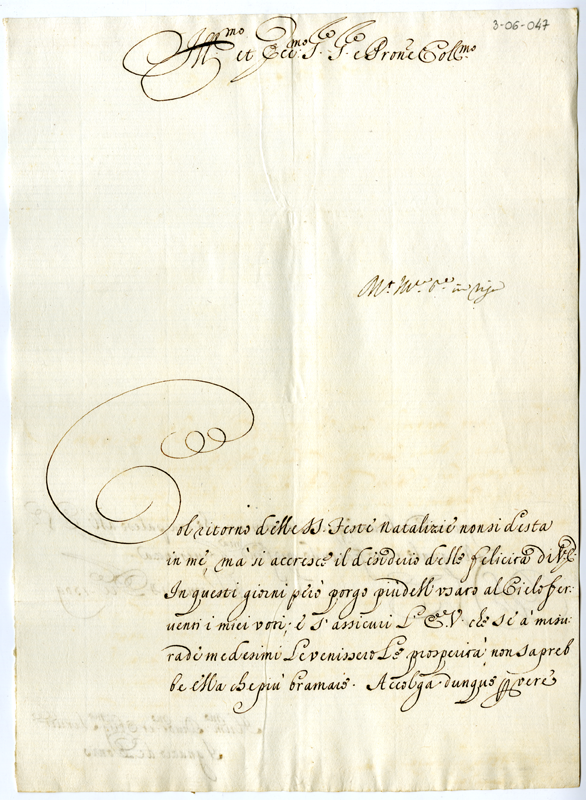 3-06-047
Ill.mo et Ecc.mo Sig.re Sig.re e Prone Coll.mo
Col ritorno delle SS. Feste Natalizie non si desta
in me, mà si accresce il desiderio delle felicità di V.E.
In questi giorni però porgo più dell'usato al Cielo fer-
venti i miei voti; e s'assicuri L'E.V. che se à misu-
ra de medesimi Le venissero Le prosperità, non sapreb
be ella che più bramare. Accolga dunque per vere